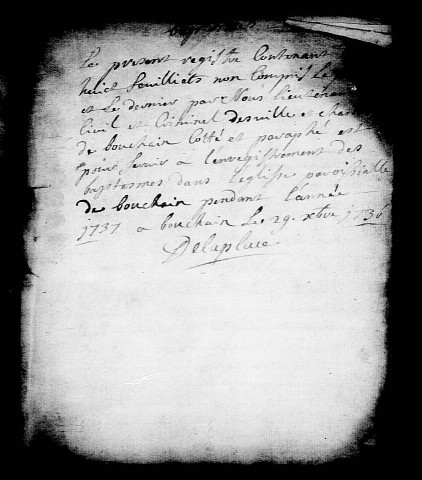 Le present registre Contenant
huict feuilliets non Compris le
et le dernier par Nous lieutenan
Civil et Criminel des ville et chas
de bouchain Cotté et paraphé est
pour servir a l'enregistrement des
baptesmes dans l'eglise paroissialle
de bouchain pendant l'année
1737 a bouchain Le 29. xbre 1736
Delaplace